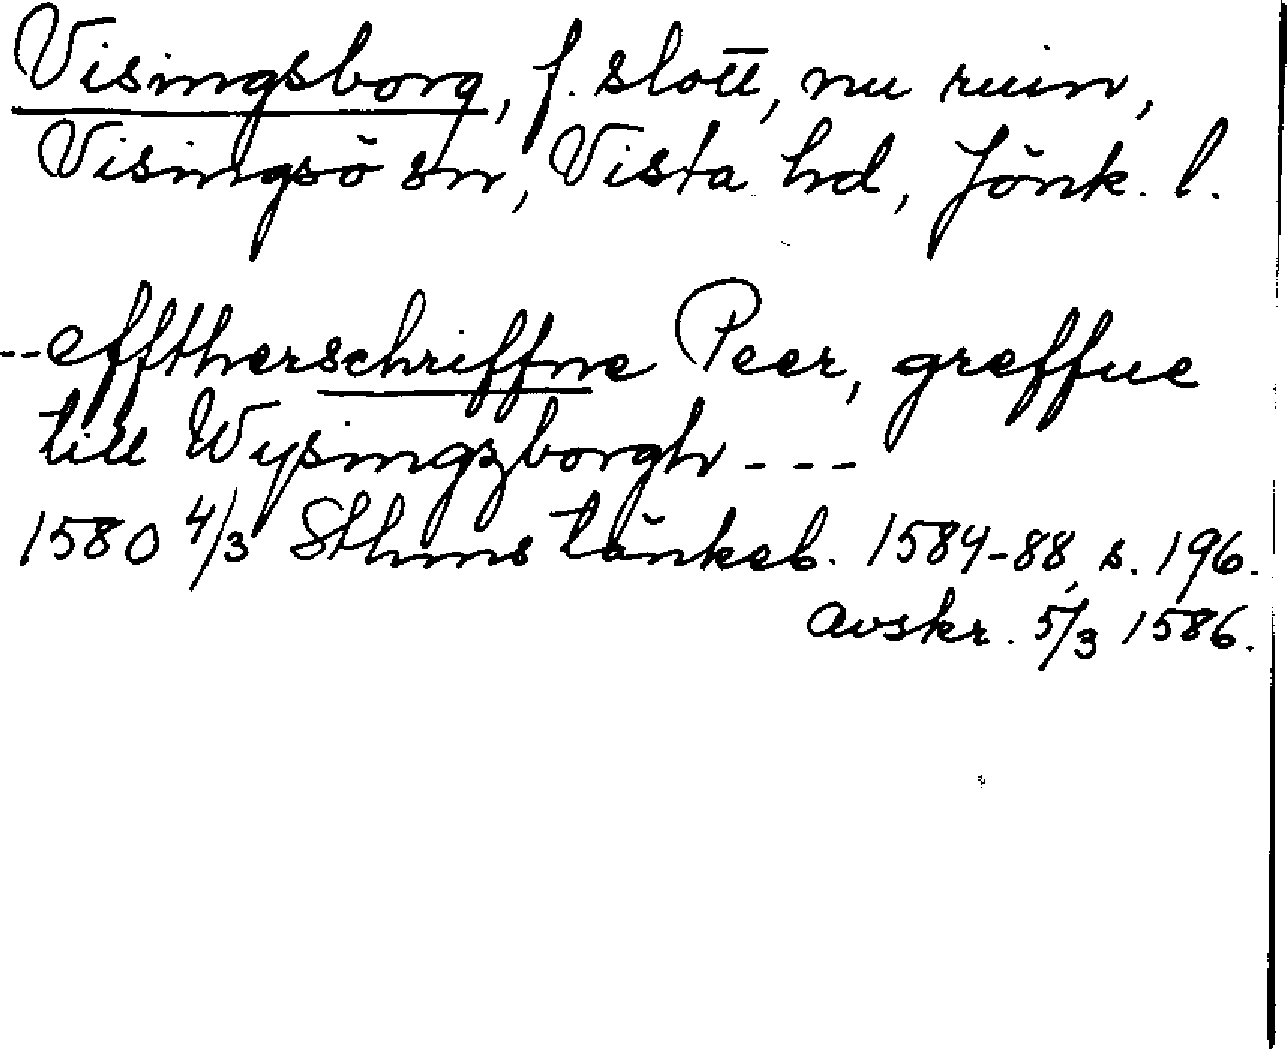 Visingsborg, f. slott, nu ruin,
Visingsö sn, Vista hd, Jönk. l.
--efftherschriffne Peer, greffue
till Wysingzborgh ---
1580 4/3 Sthms tänkeb. 1584-88, s. 196.
avskr. 5/3 1586.